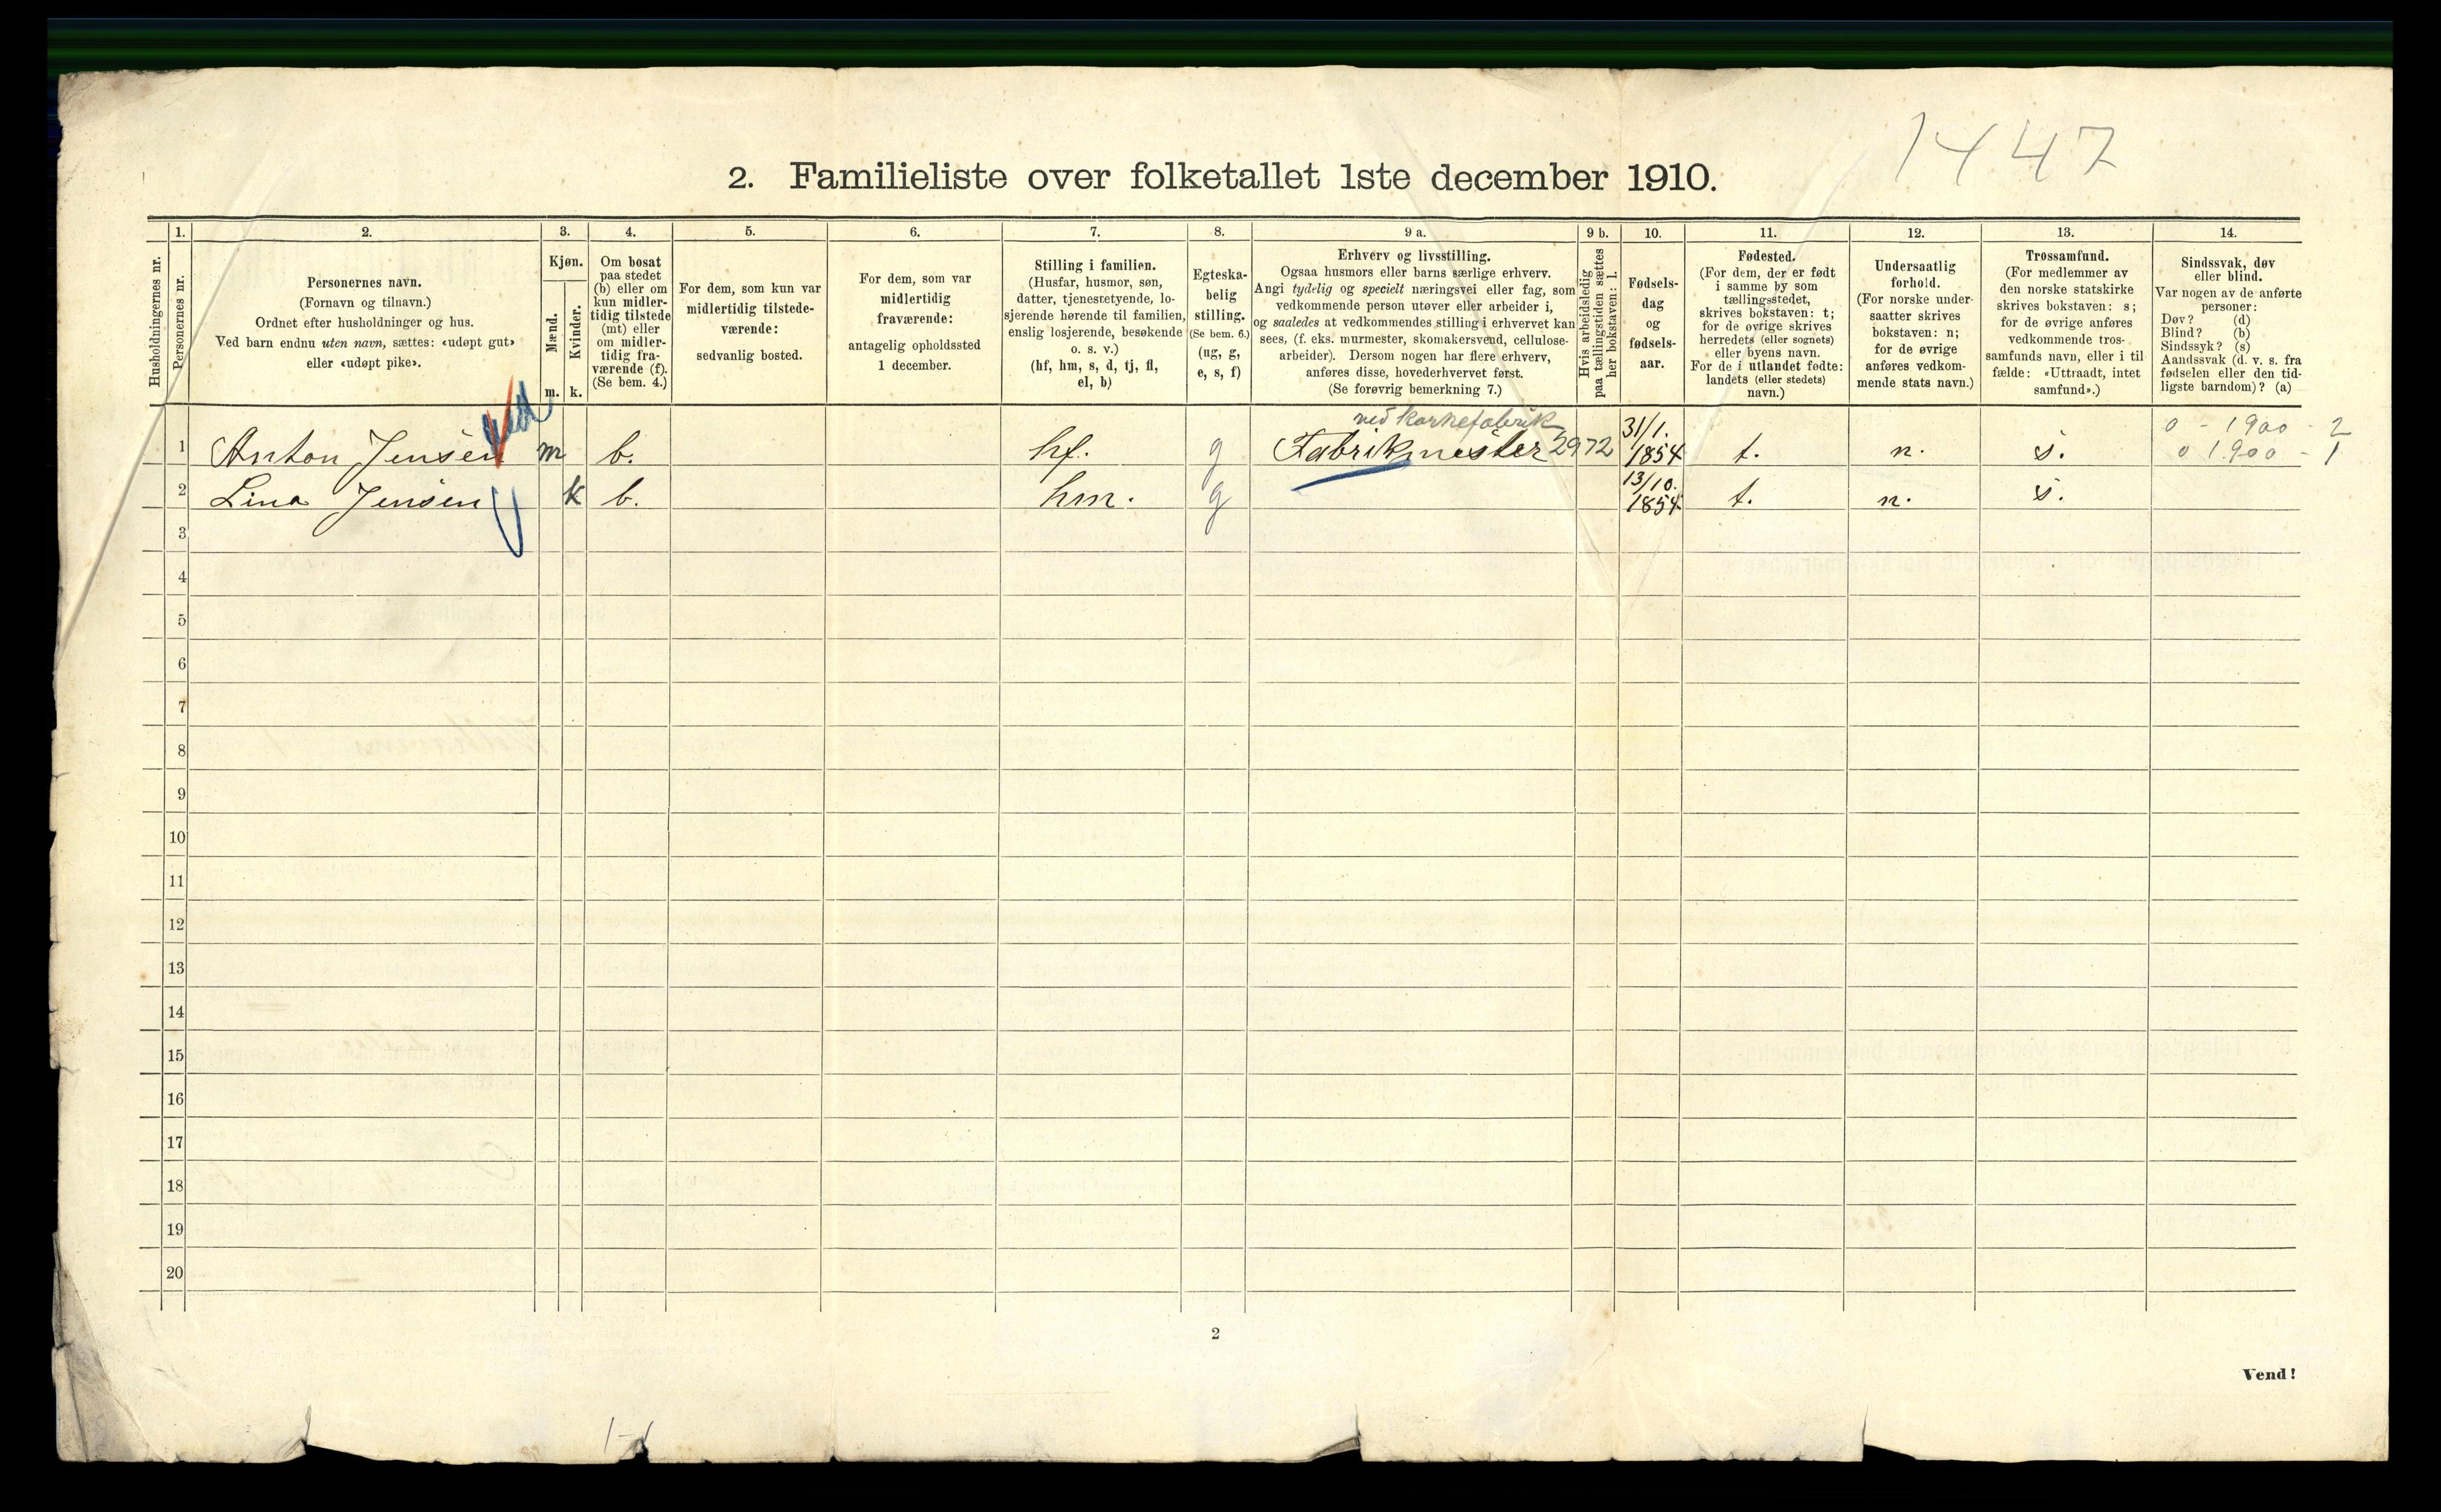 1447
2. Familieliste over folketallet 1ste december 1910.
Husholdningernes nr.
1.
Personernes nr.
2.
Personernes navn.
(Fornavn og tilnavn.)
Ordnet efter husholdninger og hus.
Ved barn endnu uten navn, sættes: «udøpt gut»
eller «udøpt pike».
3.
Kjøn.
Mænd.
Kvinder.
m.
k.
4.
Om bosat
paa stedet
(b) eller om
kun midler-
tidig tilstede
(mt) eller
om midler-
tidig fra-
værende (f).
(Se bem. 4.)
5.
For dem, som kun var
midlertidig tilstede-
værende:
sedvanlig bosted.
6.
For dem, som var
midlertidig
fraværende:
antagelig opholdssted
1 december.
7.
Stilling i familien.
(Husfar, husmor, søn,
datter, tjenestetyende, lo-
sjerende hørende til familien,
enslig losjerende, besøkende
o. s. v.)
(hf, hm, s, d, tj, fl,
el, b)
8.
Egteska-
belig
stilling.
(Se bem. 6.)
(ug, g,
e, s, f)
9 a.
Erhverv og livsstilling.
Ogsaa husmors eller barns særlige erhverv.
Angi tydelig og specielt næringsvei eller fag, som
vedkommende person utøver eller arbeider i,
og saaledes at vedkommendes stilling i erhvervet kan
sees, (f. eks. murmester, skomakersvend, cellulose-
arbeider). Dersom nogen har flere erhverv,
anføres disse, hovederhvervet først.
(Se forøvrig bemerkning 7.)
9 b.
Hvis arbeidsledig
paa tællingstiden sættes
her bokstaven: l.
10.
Fødsels-
dag
og
fødsels-
aar.
11.
Fødested.
(For dem, der er født
i samme by som
tællingsstedet,
skrives bokstaven: t;
for de øvrige skrives
herredets (eller sognets)
eller byens navn.
For de i utlandet fødte:
landets (eller stedets)
navn.)
12.
Undersaatlig
forhold.
(For norske under-
saatter skrives
bokstaven: n;
for de øvrige
anføres vedkom-
mende stats navn.)
13.
Trossamfund.
(For medlemmer av
den norske statskirke
skrives bokstaven: s;
for de øvrige anføres
vedkommende tros-
samfunds navn, eller i til
fælde: «Uttraadt, intet
samfund».)
14.
Sindssvak, døv
eller blind.
Var nogen av de anførte
personer:
Døv? (d)
Blind? (b)
Sindssyk? (s)
Aandssvak (d. v. s. fra
fødselen eller den tid-
ligste barndom)? (a)
ved korkefabrik
31/1. 0 - 1900 - 2
1 Anton Jensen m b. hf. g Fabrikmester 2972 1854 t. n. s. 0 1900 - 1
13/10.
2 Lina Jensen k b. hm. g 1854 t. n. s.
3
4
5
6
7
8
9
10
11
12
13
14
15
16
17
18
19
20
2
Vend!